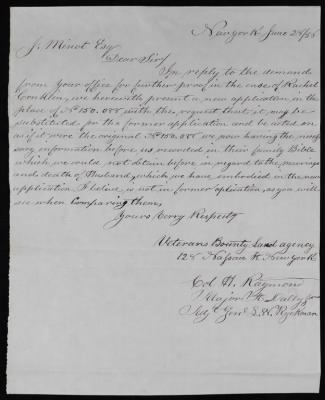 New york June 28/56
J. Minot Esq
Dear Sir
In reply to the demands
from your office for further proof in the case of Rachel
Conklin, we herewith present a new application in the
place of No 150.088 with the request that it may be
substituted for the former application and be acted on
as if it were the original No 150.088 we now having the neces
sary information before us recorded in their family Bible
which we could not obtain before in regard to the marriage
and death of Husband, which we have embodied in the new
application I believe is not in former aplication, as you will
see when Comparing them,
Yours Very Respectly
Veterans Bounty Land agency
128 Nassau st New York
Col H. Raymond
Major
Adjt Genl S. H. Ryckman